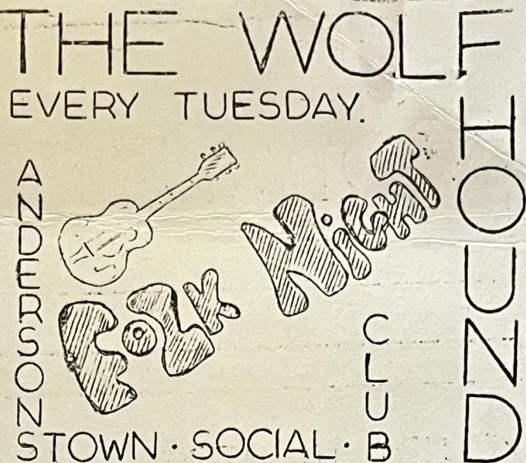 THE WOLFHOUND
EVERY TUESDAY.
FOLK NIGHT
ANDERSONSTOWN · SOCIAL · CLUB